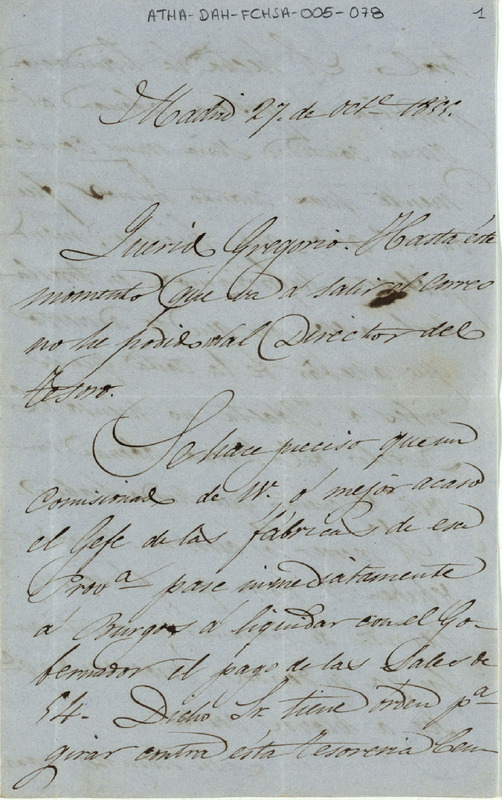 ATHA-DAH-FCHSA-005-078
1
Madrid 27. de Octe. 1855.
Querido Gregorio. Hasta éste
momento que va á salir el Correo
no he podido al Director del
tesoro.
Se hace preciso que un
Comisionado de W. ó mejor acaso
el Gefe de las fábricas de esa
Prova. pase inmediatamente
á Burgos á liquidar con el Go-
bernador el pago de las Sales de
54. Dicho Sr. tiene orden pa.
girar contra esta tesoreria Cen-